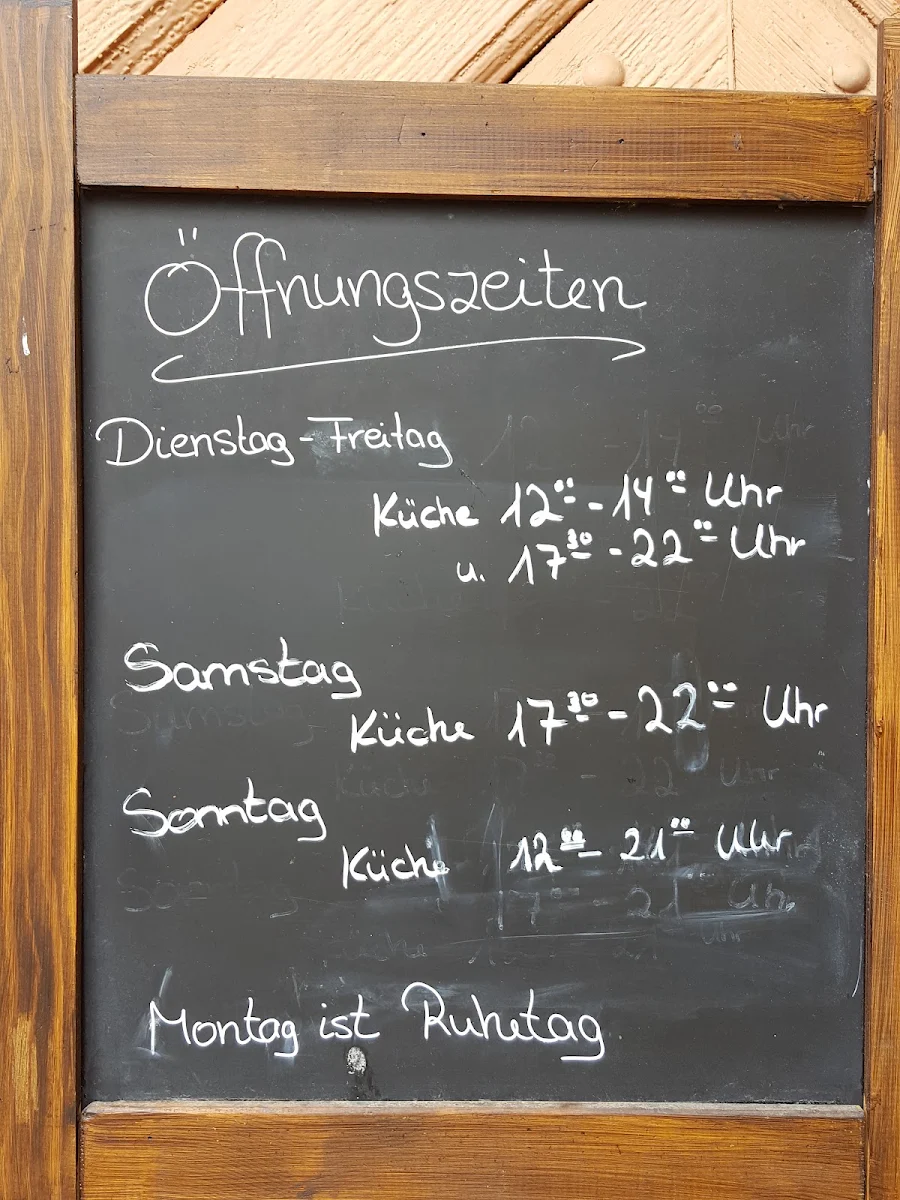 Öffnungszeiten
Dienstag - Freitag
Küche 12⁰⁰ - 14⁰⁰ Uhr
u. 17³⁰ - 22⁰⁰ Uhr
Samstag
Küche 17³⁰ - 22⁰⁰ Uhr
Sonntag
Küche 12⁰⁰ - 21⁰⁰ Uhr
Montag ist Ruhetag